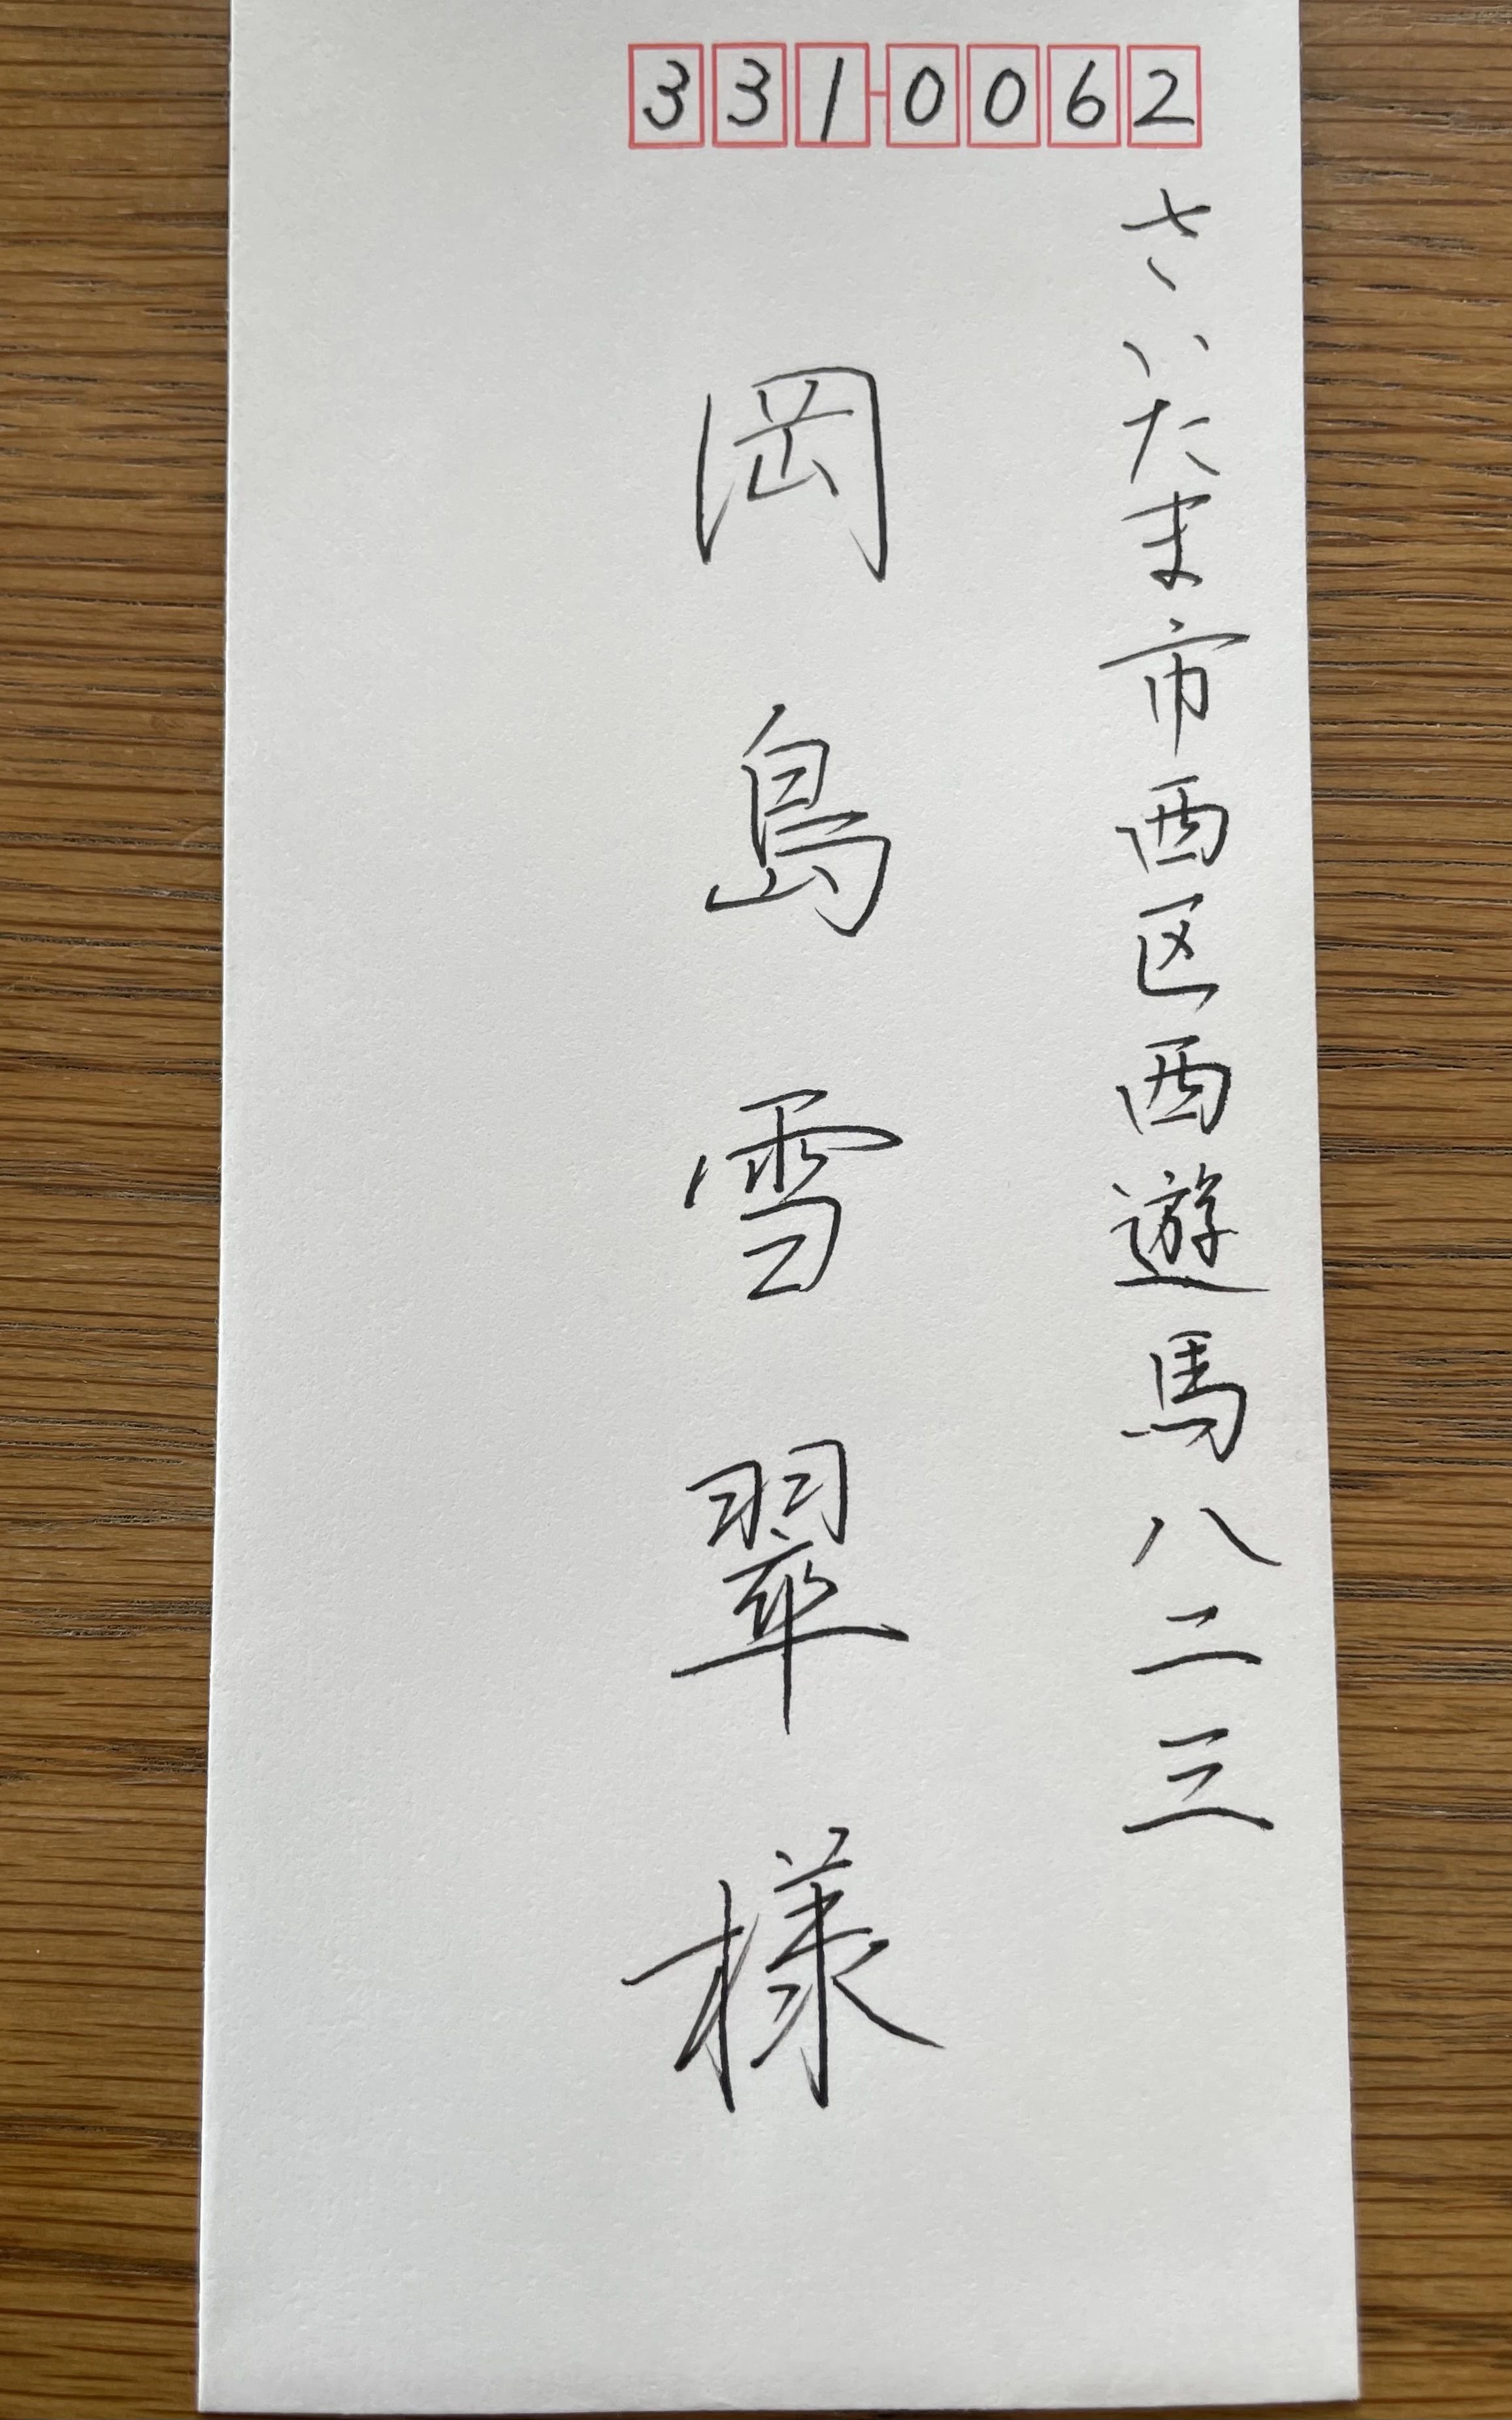 331-0062
さいたま市西区西遊馬八二三
岡島雪翠様